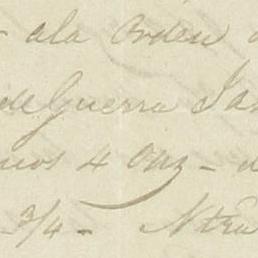 - ala Orden
de Guerra Jan
nos 4 onz -
3/4 - Ntra